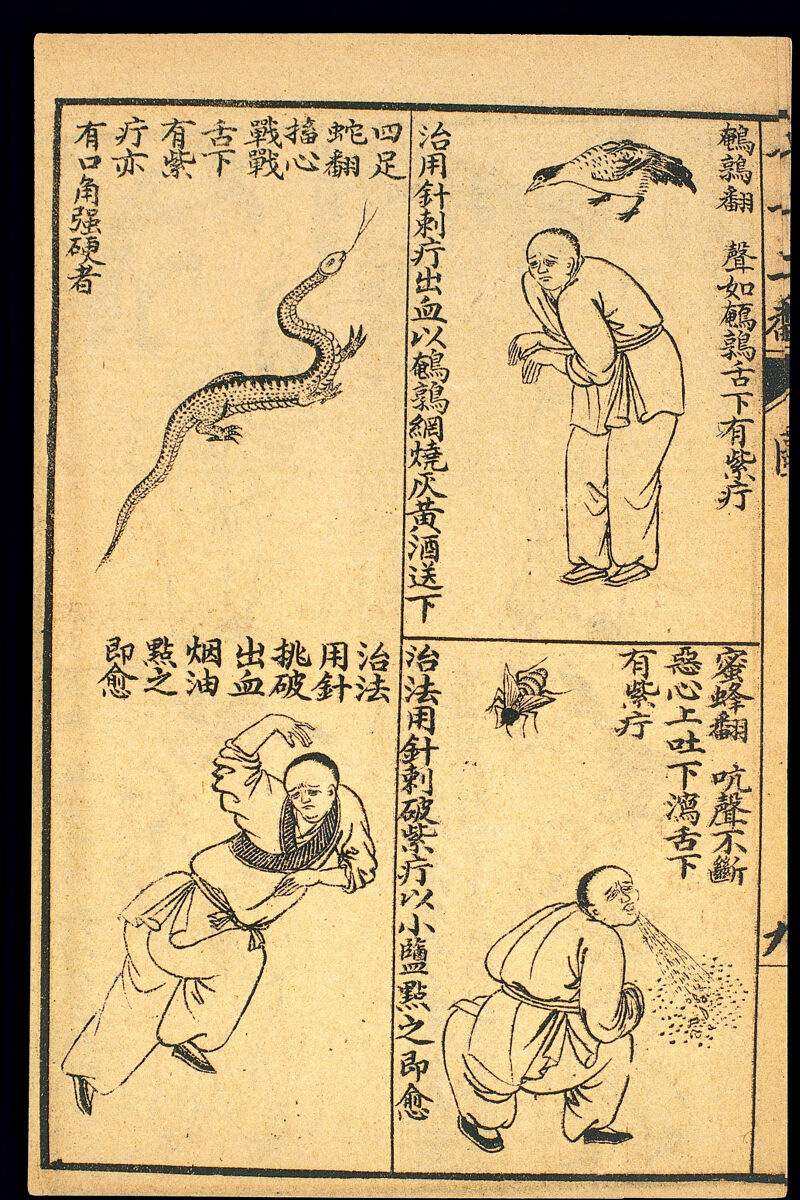 鵪鶉翻　聲如鵪鶉舌下有紫疔
治用針刺疔出血以鵪鶉網燒灰黃酒送下
蜜蜂翻　吭聲不斷
惡心上吐下瀉舌下
有紫疔
治法用針刺破紫疔以小鹽點之即愈
四足
蛇翻
搐心
戰戰
舌下
有紫
疔亦
有口角强硬者
治法
用針
挑破
出血
烟油
點之
即愈